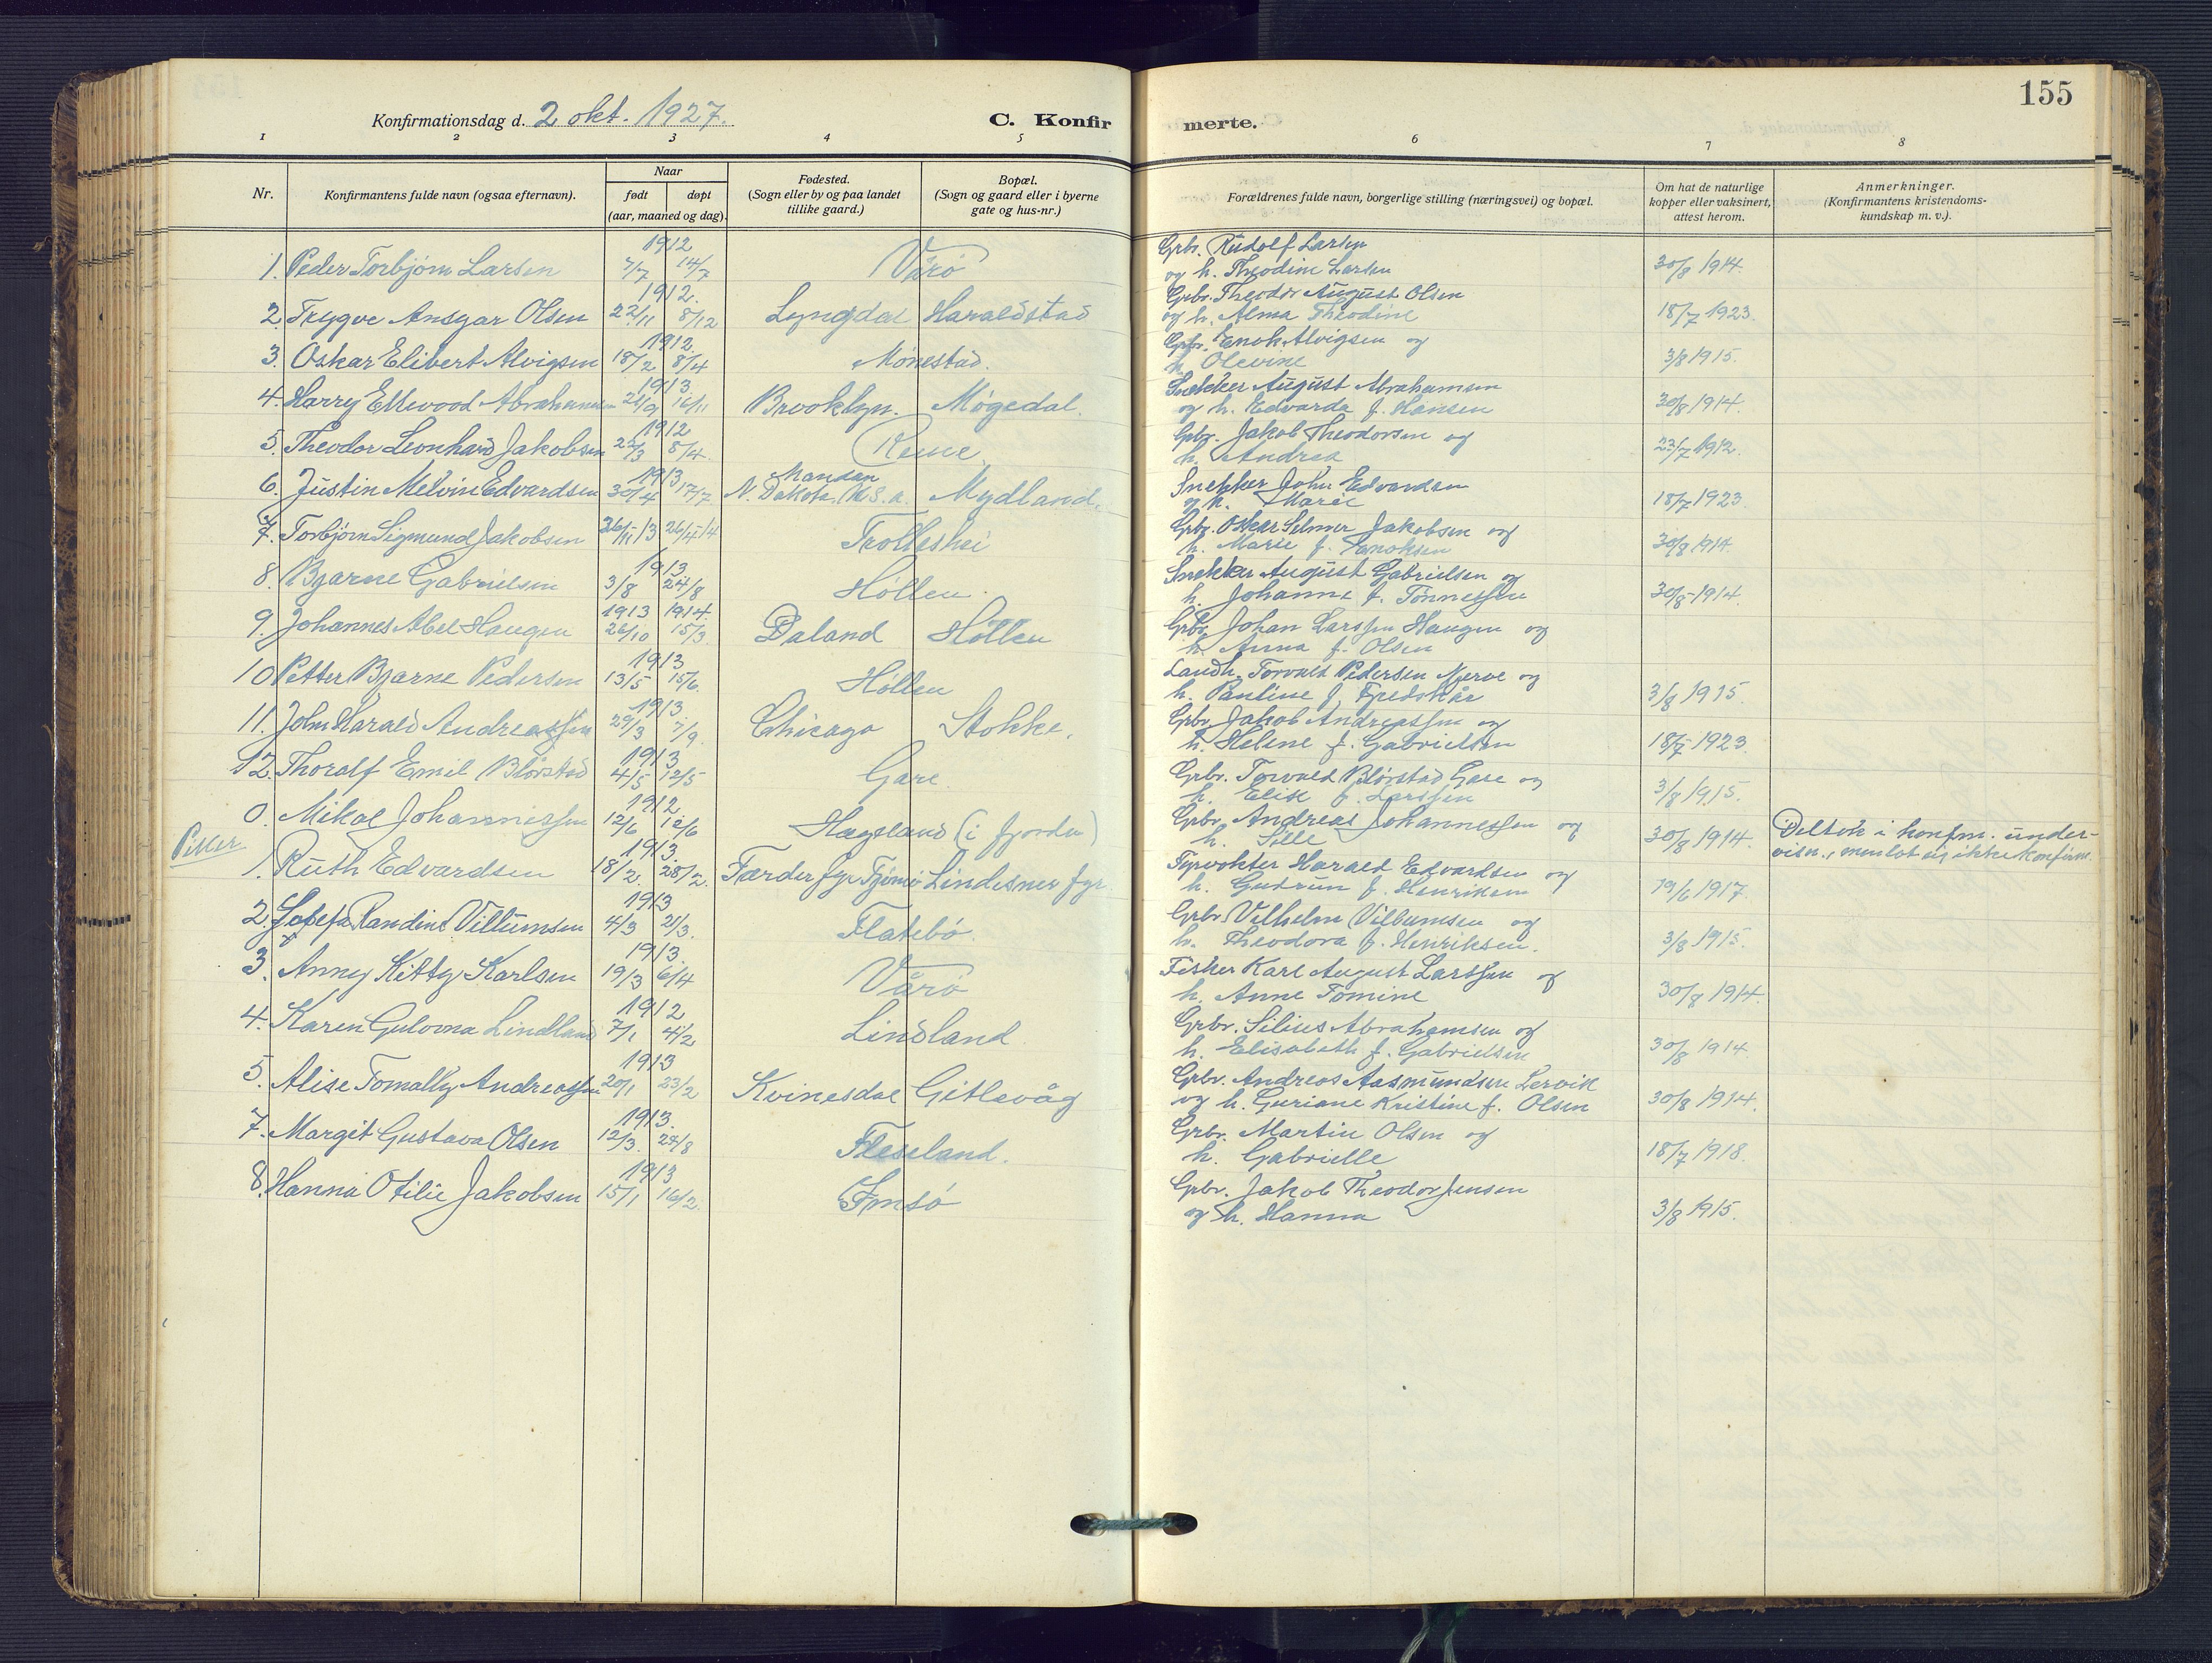 155
Konfirmationsdag d. 2 okt. 1927.
C. Konfir merte.
1 2 3 4 5 6 7 8
Nr.
Konfirmantens fulde navn (ogsaa efternavn).
Naar
født døpt
(aar, maaned og dag).
Fødested.
(Sogn eller by og paa landet
tillike gaard.)
Bopæl.
(Sogn og gaard eller i byerne
gate og hus-nr.)
Forældrenes fulde navn, borgerlige stilling (næringsvei) og bopæl.
Om hat de naturlige
kopper eller vaksinert,
attest herom.
Anmerkninger.
(Konfirmantens kristendoms-
kundskap m. v.).
1912 Grbr. Rudolf Larsen
1. Peder Torbjørn Larsen 7/7 14/7 Vårø og h. Theodine Larsen 30/8 1914.
1912. Grbr. Theodor August Olsen
2. Trygve Ansgar Olsen 22/11 8/12 Lyngdal Haraldstad og h. Alma Theodine 18/7 1923.
1912. Grbr. Enok Alvigsen og
3. Oskar Elibert Alvigsen 18/2 8/4 Mønestad. h. Olevine 3/8 1915.
1913 Snekker August Abrahamsen
4. Harry Ellwood Abrahamsen 21/9 16/11 Brooklyn. Møgedal. og h. Edvarda f. Hansen 30/8 1914.
1912 Grbr. Jakob Theodorsen og
5. Theodor Leonhard Jakobsen 22/3 8/4. Reme h. Andrea 23/7 1912.
1913 Mandan Snekker John Edvardsen
6. Justin Melvin Edvardsen 30/4 17/7 N. Dakota. U.S.a. Mydland. og h. Marie 18/7 1923
7. Torbjørn Sigmund Jakobsen 26/11 13 26/4 14 Trolleshei Grbr. Oskar Selmer Jakobsen og
h. Marie f. Enoksen 30/8 1914.
1913 Snekker August Gabrielsen og
8. Bjarne Gabrielsen 3/8 24/8 Høllen. h. Johanne f. Tønnessen 30/8 1914.
1913 1914. Grbr. Johan Larssen Haugen og
9. Johannes Abel Haugen 26/10 15/3. Daland Høllen h. Anna f. Olsen
1913 Landh. Torvald Pedersen Njerve og
10 Petter Bjarne Pedersen 13/5 15/6. Høllen h. Pauline f. Fredskår 3/8 1915.
1913. Grbr. Jakob Andreassen og
11. John Harald Andreassen 29/3 7/9. Chicago Stokke. h. Helene f. Gabrielsen 18/7 1923.
1913 Grbr. Torvald Bløistad Gare og
12. Thoralf Emil Bløistad 4/5 12/5 Gare h. Elise f. Larssen 3/8 1915.
1912. Grbr. Andreas Johannessen og
0. Mikal Johannessen 12/6 12/6 Hægeland (i fjorden) h. Sille 30/8 1914. Deltok i konfm. under-
visn., men lot sig ikke konfirm.
Piker
1913. Fyrvokter Harald Edvardsen og
1. Ruth Edvardsen 18/2. 28/2. Færder fyr Tjømø Lindesnes fyr h. Gudrun f. Henriksen 19/6 1917.
1913 Grbr. Vilhelm Villumsen og
2. Josefa Randine Villumsen 4/3 21/3. Flatebø. h. Theodora f. Henriksen. 3/8 1915.
1913. Fisker Karl August Larssen og
3. Anny Kitty Karlsen 19/3 6/4 Vårø h. Anne Tomine 30/8 1914.
1912 Grbr. Silius Abrahamsen og
4. Karen Gulovna Lindland 7/1 4/2 Lindland h. Elisabeth f. Gabrielsen 30/8 1914.
1913 Grbr. Andreas Aasmundsen Lervik
5. Alise Tomally Andreassen 20/1 23/2 Kvinesdal Gitlevåg og h. Guriane Kristine f. Olsen 30/8 1914.
1913. Grbr. Martin Olsen og
7. Margit Gustava Olsen 12/3. 24/8 Fleseland. h. Gabrielle 18/7 1918.
1913 Grbr. Jakob Theodor Jensen
8. Hanna Otilie Jakobsen 15/1 16/2. Imsø og h. Hanna 3/8 1915.